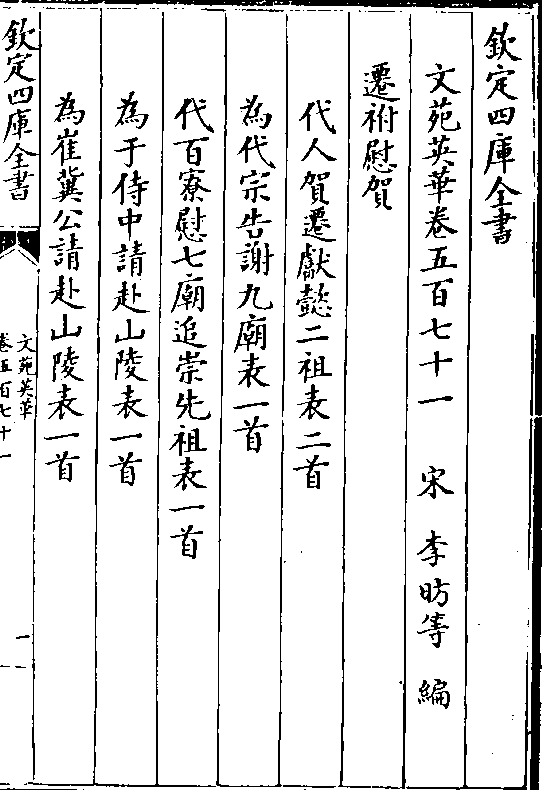 欽定四庫全書
文苑英華卷五百七十一 宋 李昉等 編
遷祔慰賀
代人賀遷獻懿二祖表二首
為代宗告謝九廟表一首
代百寮慰七廟追崇先祖表一首
為于侍中請赴山陵表一首
為崔冀公請赴山陵表一首
欽定四庫全書
文苑英華
卷五百七十一
一